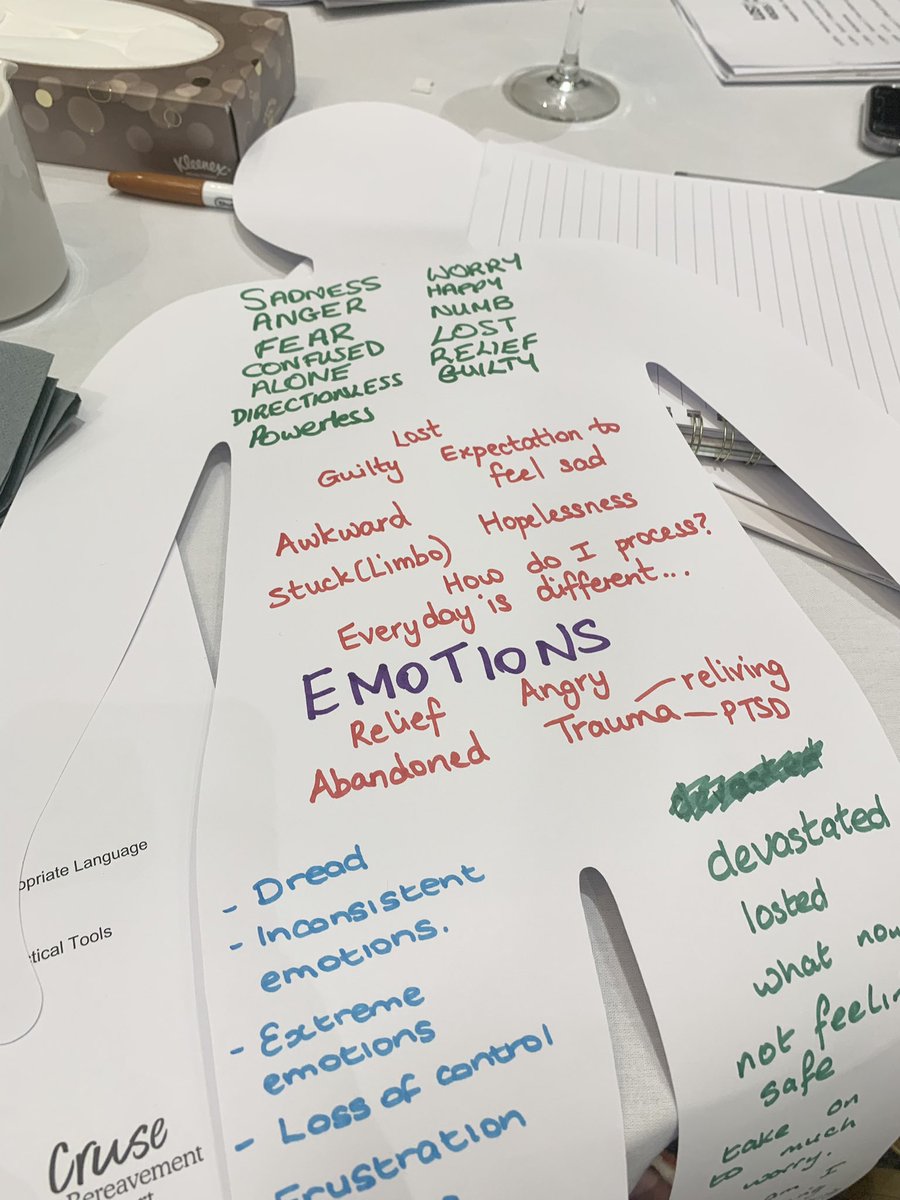 Kleenex
SADNESS
ANGER
FEAR
CONFUSED
ALONE
DIRECTIONLESS
Powerless
WORRY
HAPPY
NUMB
LOST
RELIEF
GUILTY
Lost
Guilty
Expectation to
feel sad
Awkward
Hopelessness
Stuck (Limbo)
How do I process?
Everyday is different...
EMOTIONS
Relief
Angry
Abandoned
Trauma – reliving
– PTSD
devastated
losted
what now
not feelin
safe
take on
to much
worry.
- Dread
- Inconsistent
emotions.
- Extreme
emotions
- Loss of control
Frustration
opriate Language
tical Tools
Cruse
Bereavement